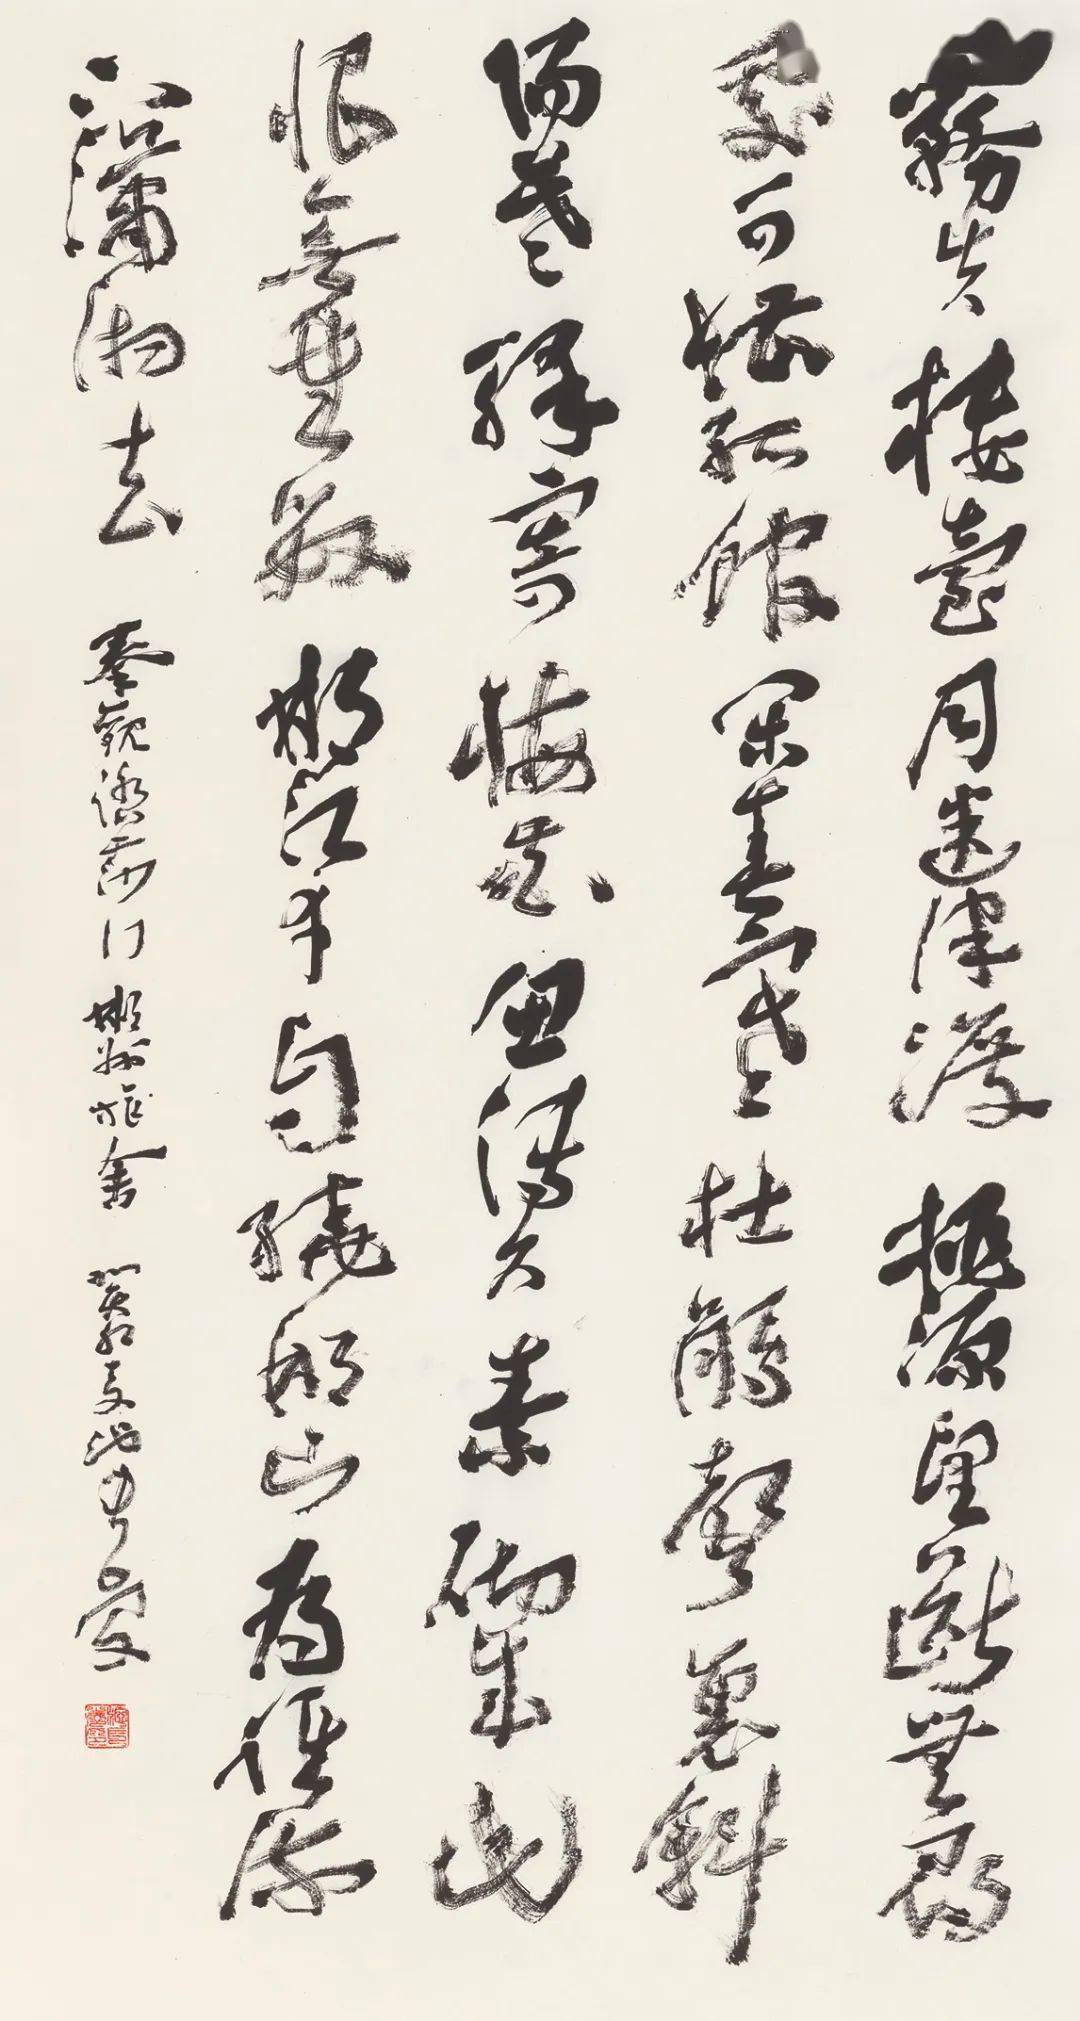 霧失樓臺月迷津渡桃源望斷無尋
處可堪孤館閉春寒杜鵑聲裏斜
陽暮驛寄梅花魚傳尺素砌成此
恨無重數郴江幸自繞郴山為誰流
下瀟湘去
秦觀踏莎行郴州旅舍